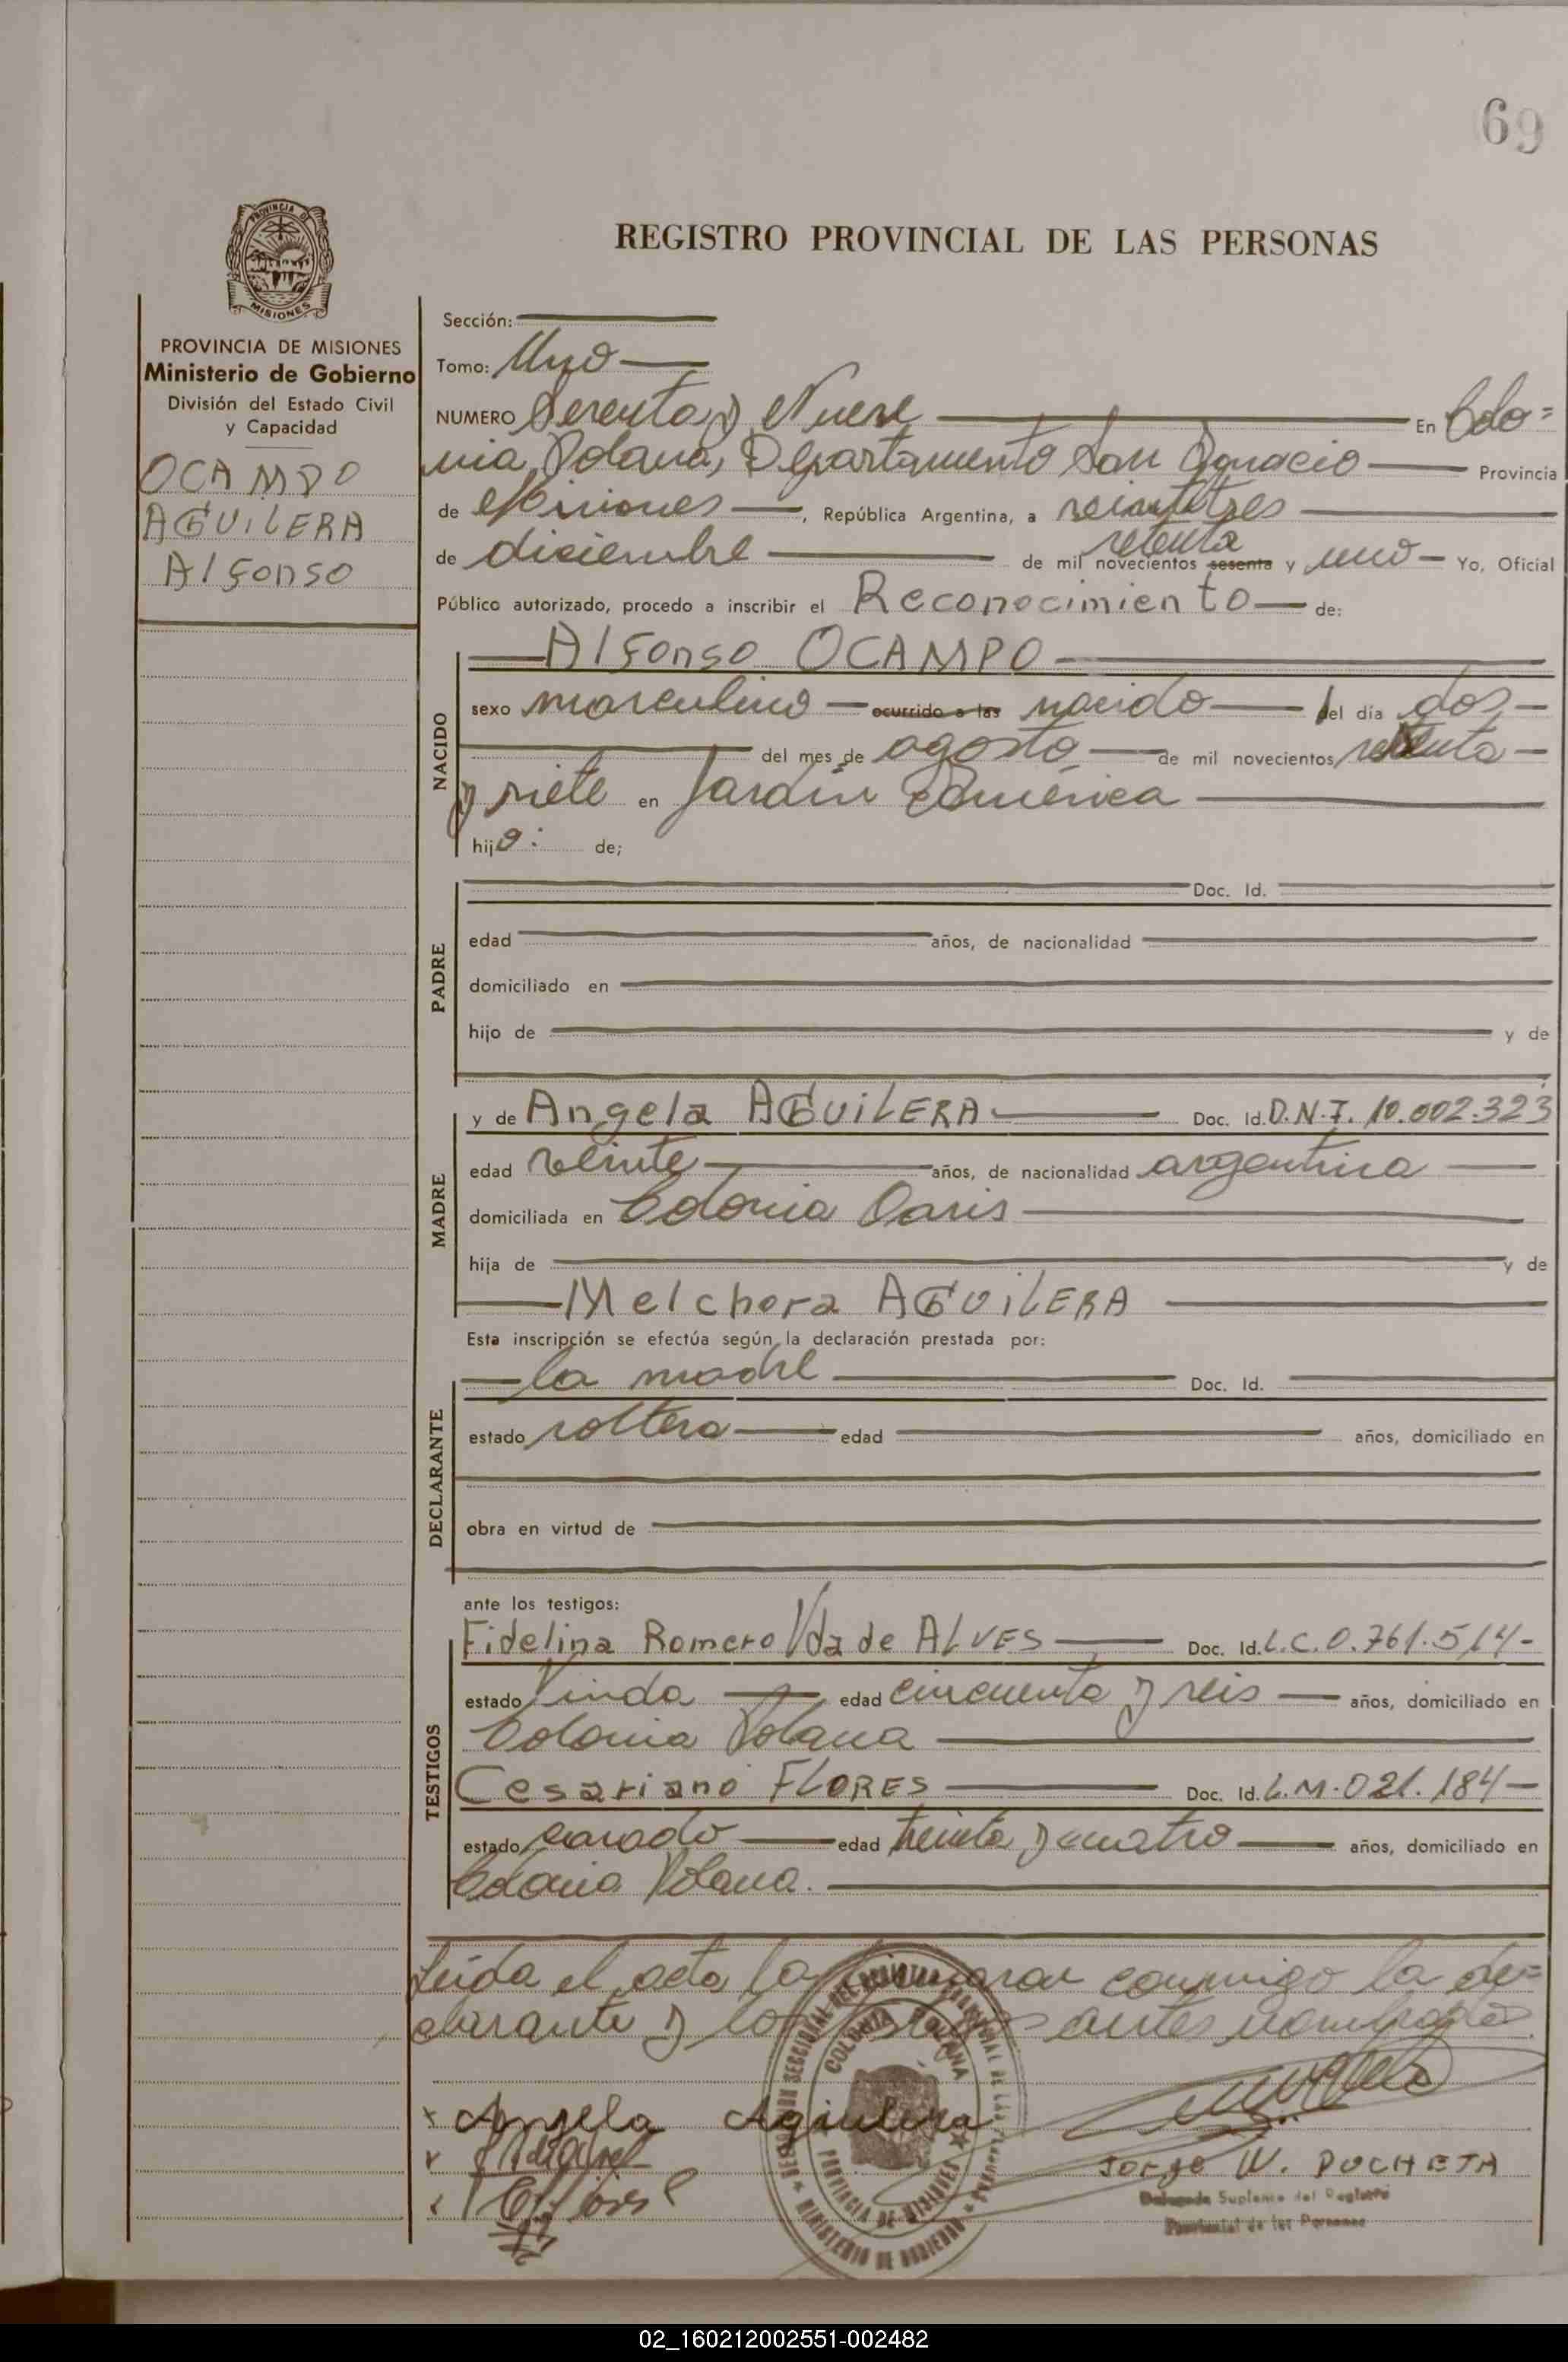 69
PROVINCIA DE
MISIONES
REGISTRO PROVINCIAL DE LAS PERSONAS
PROVINCIA DE MISIONES
Ministerio de Gobierno
División del Estado Civil
y Capacidad
OCAMPO
AGUILERA
Alfonso
Sección:
Tomo: Uno
NUMERO Sesenta y Nueve En Colo=
nia Polana, Departamento San Ignacio Provincia
de Misiones, República Argentina, a veintitres
setenta
de diciembre de mil novecientos sesenta y uno Yo, Oficial
Público autorizado, procedo a inscribir el Reconocimiento de:
Alfonso OCAMPO
NACIDO
sexo masculino ocurrido a las nacido del día dos
del mes de agosto de mil novecientos
y siete en Jardín América
hijo: de;
PADRE
Doc. Id.
edad años, de nacionalidad
domiciliado en
hijo de y de
MADRE
y de Angela AGUILERA Doc. Id. D.N.I. 10.002.323
edad veinte años, de nacionalidad argentina
domiciliada en Colonia Oasis
hija de y de
Melchora AGUILERA
Esta inscripción se efectúa según la declaración prestada por:
DECLARANTE
la madre Doc. Id.
estado soltera edad años, domiciliado en
obra en virtud de
ante los testigos:
TESTIGOS
Fidelina Romero Vda de ALVES Doc. Id. L.C.0.761.514-
estado Viuda edad cincuenta y seis años, domiciliado en
Colonia Polana
Cesariano FLORES Doc. Id. L.M.021.184-
estado casado edad treinta y cuatro años, domiciliado en
Colonia Polana.
Leida el acta la firmaran conmigo la de=
clarante y los testigos antes nombrados
COLONIA POLANA
PROVINCIA DE MISIONES
MINISTERIO DE GOBIERNO
Angela Aguilera
Jorge W. PUCHETA
Delegado Suplente del Registro
Provincial de las Personas
02_160212002551-002482